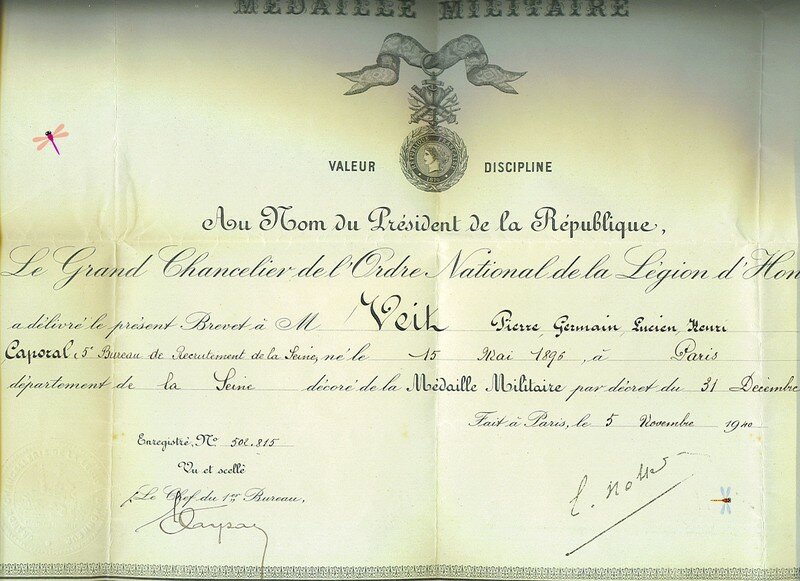 MÉDAILLE MILITAIRE
VALEUR DISCIPLINE
Au Nom du Président de la République,
Le Grand Chancelier de l'Ordre National de la Légion d'Hon
a délivré le présent Brevet à M Veitz Pierre, Germain, Lucien Henri
Caporal, 5e Bureau de Recrutement de la Seine, né le 15 Mai 1896, à Paris
département de la Seine décoré de la Médaille Militaire par décret du 31 Décembre
Fait à Paris, le 5 Novembre 1940
Enregistré, No 502.815
Vu et scellé
Le Chef du 1er Bureau,